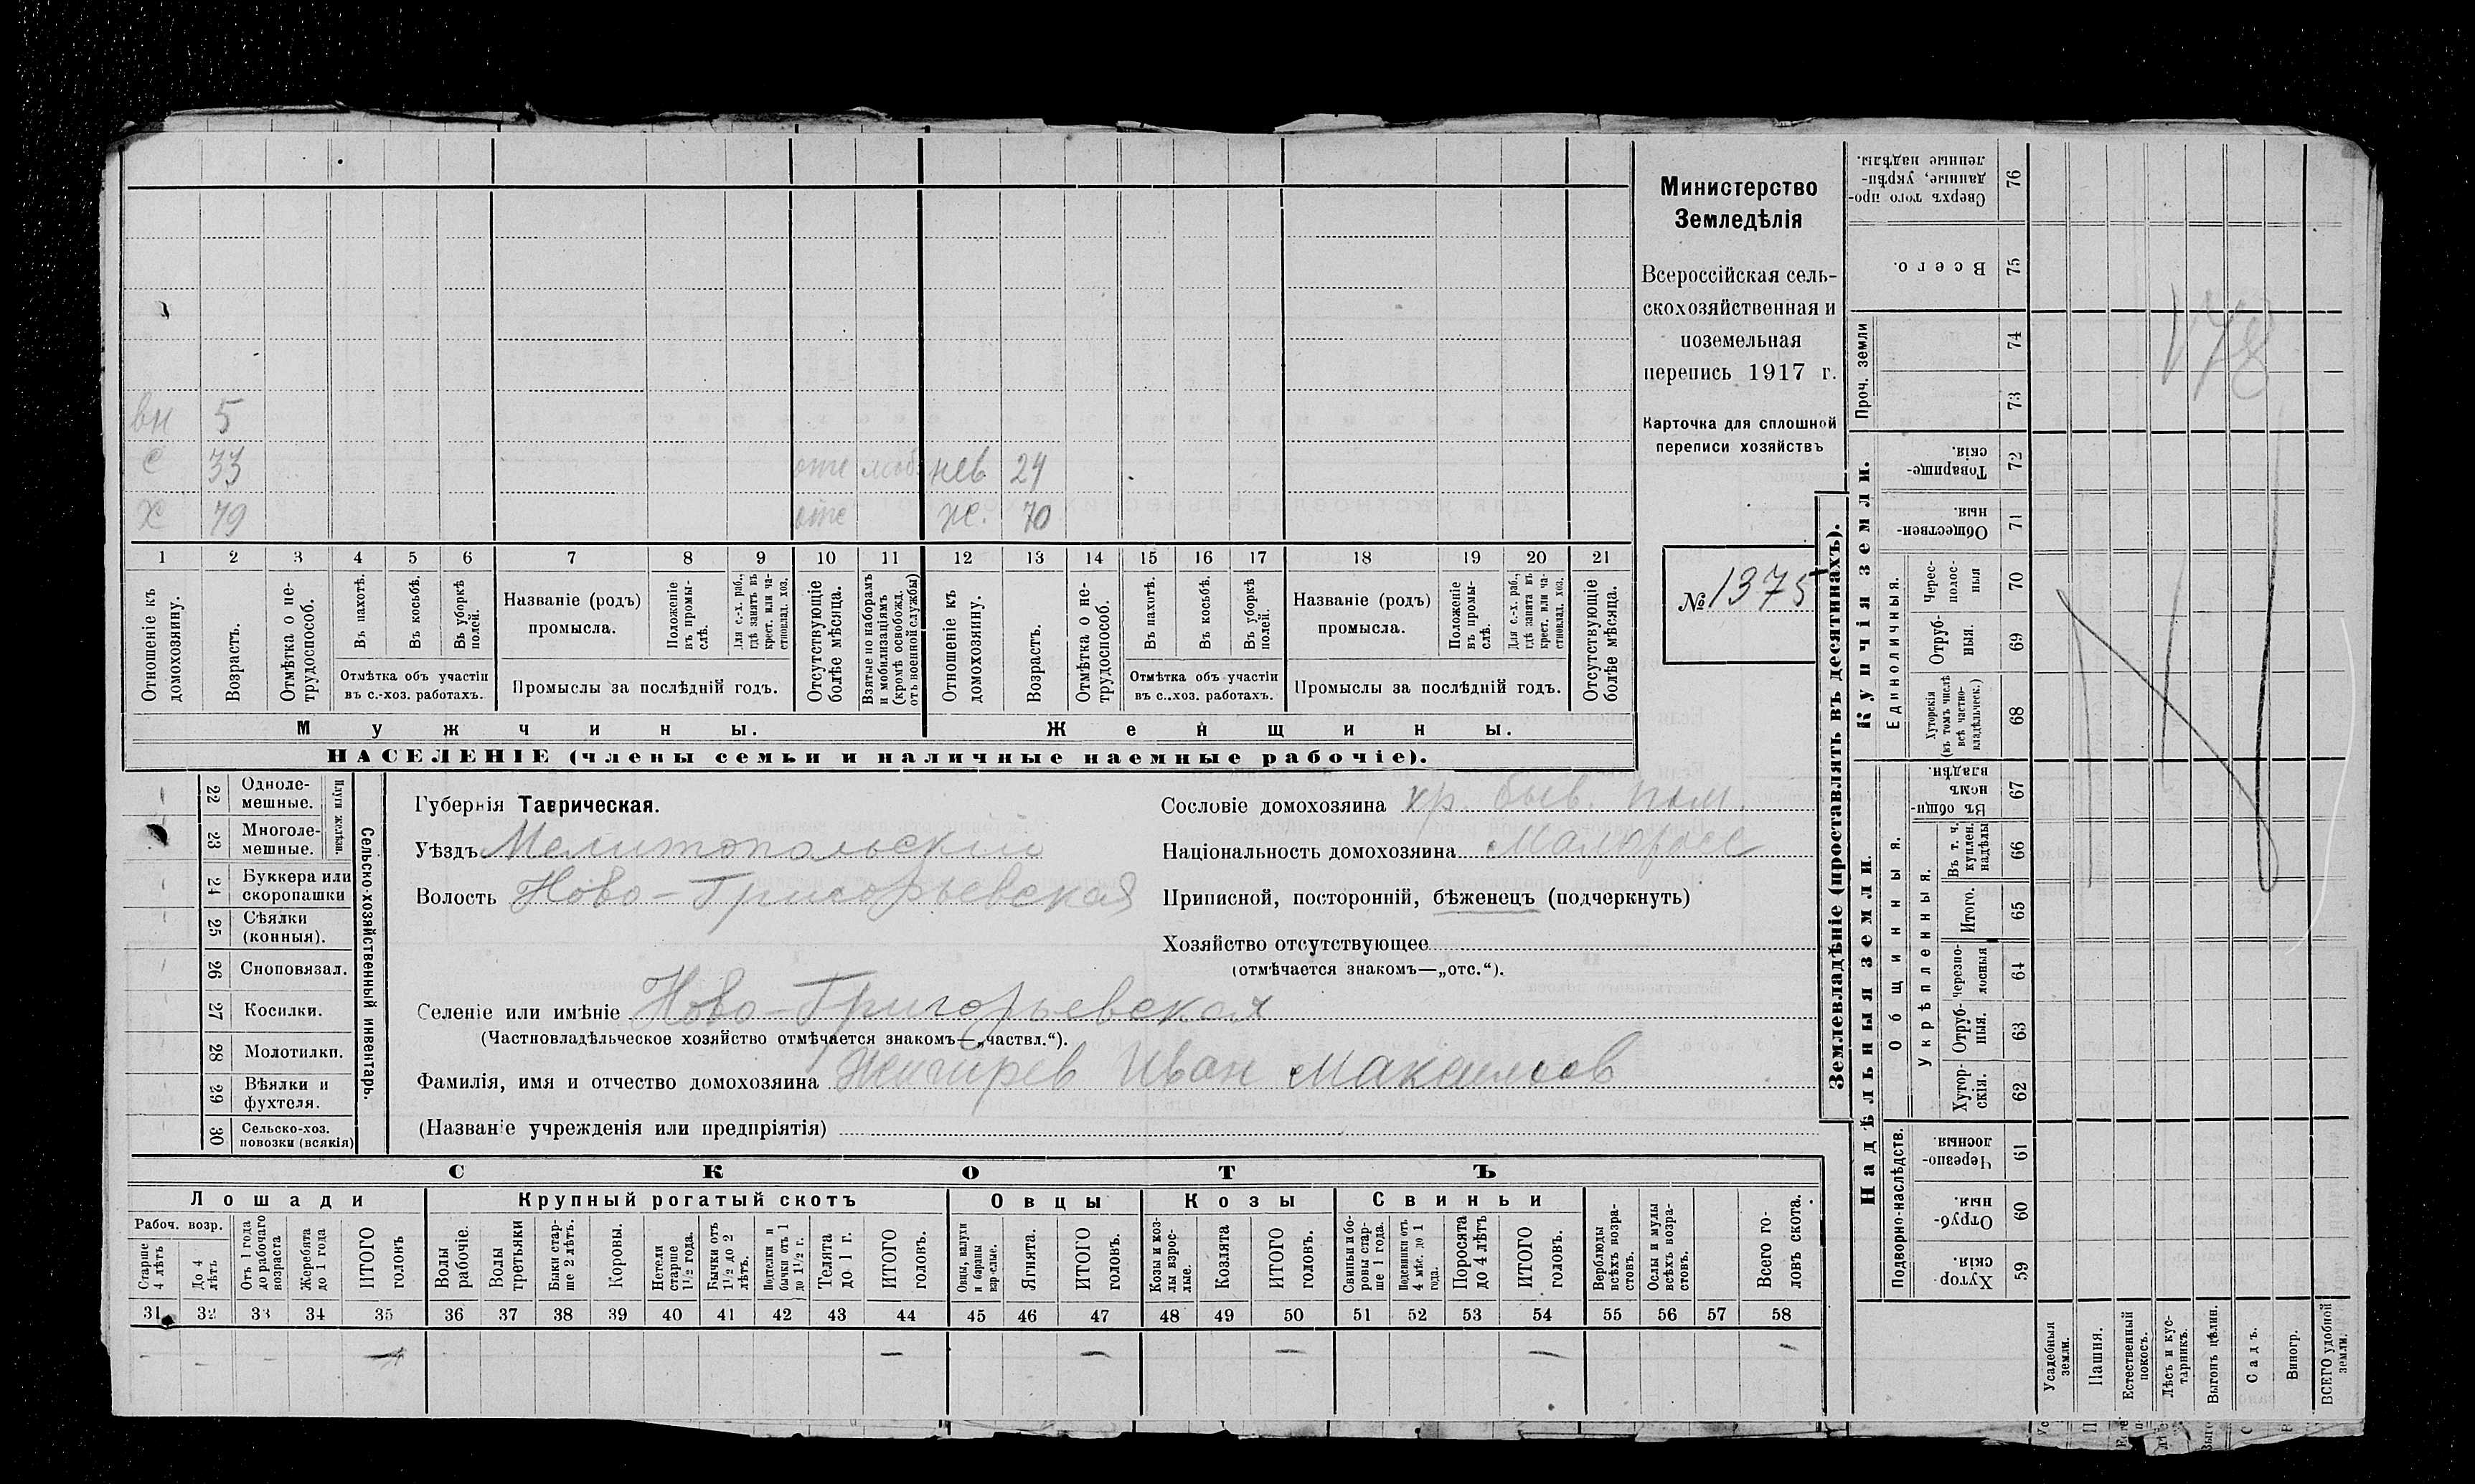 вн 5
С 33 отс моб. нев 24
Х 79 отс ж. 70
1 2 3 4 5 6 7 8 9 10 11 12 13 14 15 16 17 18 19 20 21
Отношеніе къ домохозяину.
Возрастъ.
Отмѣтка о не-
трудоспособ.
Въ пахотѣ.
Въ косьбѣ.
Въ уборкѣ полей.
Отмѣтка объ участіи
въ с.-хоз. работахъ.
Названіе (родъ)
промысла.
Положеніе въ промы-
слѣ.
Для с.-х. раб., гдѣ занятъ въ крест. или ча-
стновлад. хоз.
Промыслы за послѣдній годъ.
Отсутствующіе болѣе мѣсяца.
Взятые по наборамъ и мобилизаціямъ (кромѣ освобожд. отъ военной службы)
Отношеніе къ домохозяину.
Возрастъ.
Отмѣтка о не-
трудоспособ.
Въ пахотѣ.
Въ косьбѣ.
Въ уборкѣ полей.
Отмѣтка объ участіи
въ с..хоз. работахъ.
Названіе (родъ)
промысла.
Положеніе въ промы-
слѣ.
Для с.-х. раб., гдѣ занята въ крест. или ча-
стновлад. хоз.
Промыслы за послѣдній годъ.
Отсутствующіе болѣе мѣсяца.
Мужчины.
Женщины.
НАСЕЛЕНІЕ (члены семьи и наличные наемные рабочіе).
Министерство
Земледѣлія
Всероссійская сель-
скохозяйственная и
поземельная
перепись 1917 г.
Карточка для сплошной
переписи хозяйствъ
№ 1375
22 Одноле-
мешные.
23 Многоле-
мешные.
Плуги желѣзн.
24 Буккера или
скоропашки
25 Сѣялки
(конныя).
26 Сноповязал.
27 Косилки.
28 Молотилки.
29 Вѣялки и
фухтеля.
30 Сельско-хоз.
повозки (всякія)
Сельско-хозяйственный инвентарь.
Губернія Таврическая.
Уѣздъ Мелитопольскій
Волость Ново-Григорьевская
Сословіе домохозяина кр. быв. пом.
Національность домохозяина Малоросс
Приписной, посторонній, бѣженецъ (подчеркнуть)
Хозяйство отсутствующее
(отмѣчается знакомъ—„отс.“).
Селеніе или имѣніе Ново-Григорьевская
(Частновладѣльческое хозяйство отмѣчается знакомъ—„частвл.“).
Фамилія, имя и отчество домохозяина Жигирев Иван Максимов
(Названіе учрежденія или предпріятія)
СКОТЪ
Лошади
Крупный рогатый скотъ
Овцы
Козы
Свиньи
Рабоч. возр.
Старше 4 лѣтъ
До 4 лѣтъ
Отъ 1 года до рабочаго возраста
Жеребята до 1 года
ИТОГО головъ
Волы рабочіе.
Волы третьяки
Быки стар-
ше 2 лѣтъ.
Коровы.
Нетели старше 1½ года.
Бычки отъ 1½ до 2 лѣтъ.
Подтелки и бычки отъ 1 до 1½ г.
Телята до 1 г.
ИТОГО головъ.
Овцы, валухи и бараны взрослые.
Ягнята.
ИТОГО головъ.
Козы и коз-
лы взрос-
лые.
Козлята
ИТОГО головъ.
Свиньи и бо-
ровы стар-
ше 1 года.
Подсвинки отъ 4 мѣс. до 1 года.
Поросята до 4 лѣтъ
ИТОГО головъ.
Верблюды всѣхъ возра-
стовъ.
Ослы и мулы всѣхъ возра-
стовъ.
Всего го-
ловъ скота.
31 32 33 34 35 36 37 38 39 40 41 42 43 44 45 46 47 48 49 50 51 52 53 54 55 56 57 58
Землевладѣніе (проставлять въ десятинахъ).
Надѣльныя земли.
Купчія земли.
Проч. земли
Подворно-наслѣдств.
Общинныя.
Укрѣпленныя.
Единоличныя.
Сверхъ того про-
данные, укрѣп-
ленные надѣлы.
76
Всего.
75
74
73
Товарище-
скія.
72
Обществен-
ныя.
71
Черес-
полос-
ныя
70
Отруб-
ныя.
69
Хуторскія
(въ томъ числѣ
всѣ частно-
владѣльческ.)
68
Въ общи-
номъ
владѣн.
67
Въ т. ч.
куплен.
надѣлы
66
Итого.
65
Черезпо-
лосныя
64
Отруб-
ныя.
63
Хутор-
скія.
62
Черезпо-
лосныя.
61
Отруб-
ныя.
60
Хутор-
скія.
59
Усадебныя земли.
Пашня.
Естественный покосъ.
Лѣсъ и кус-
тарникъ.
Выгонъ цѣлин.
Садъ.
Виногр.
ВСЕГО удобной земли.
178